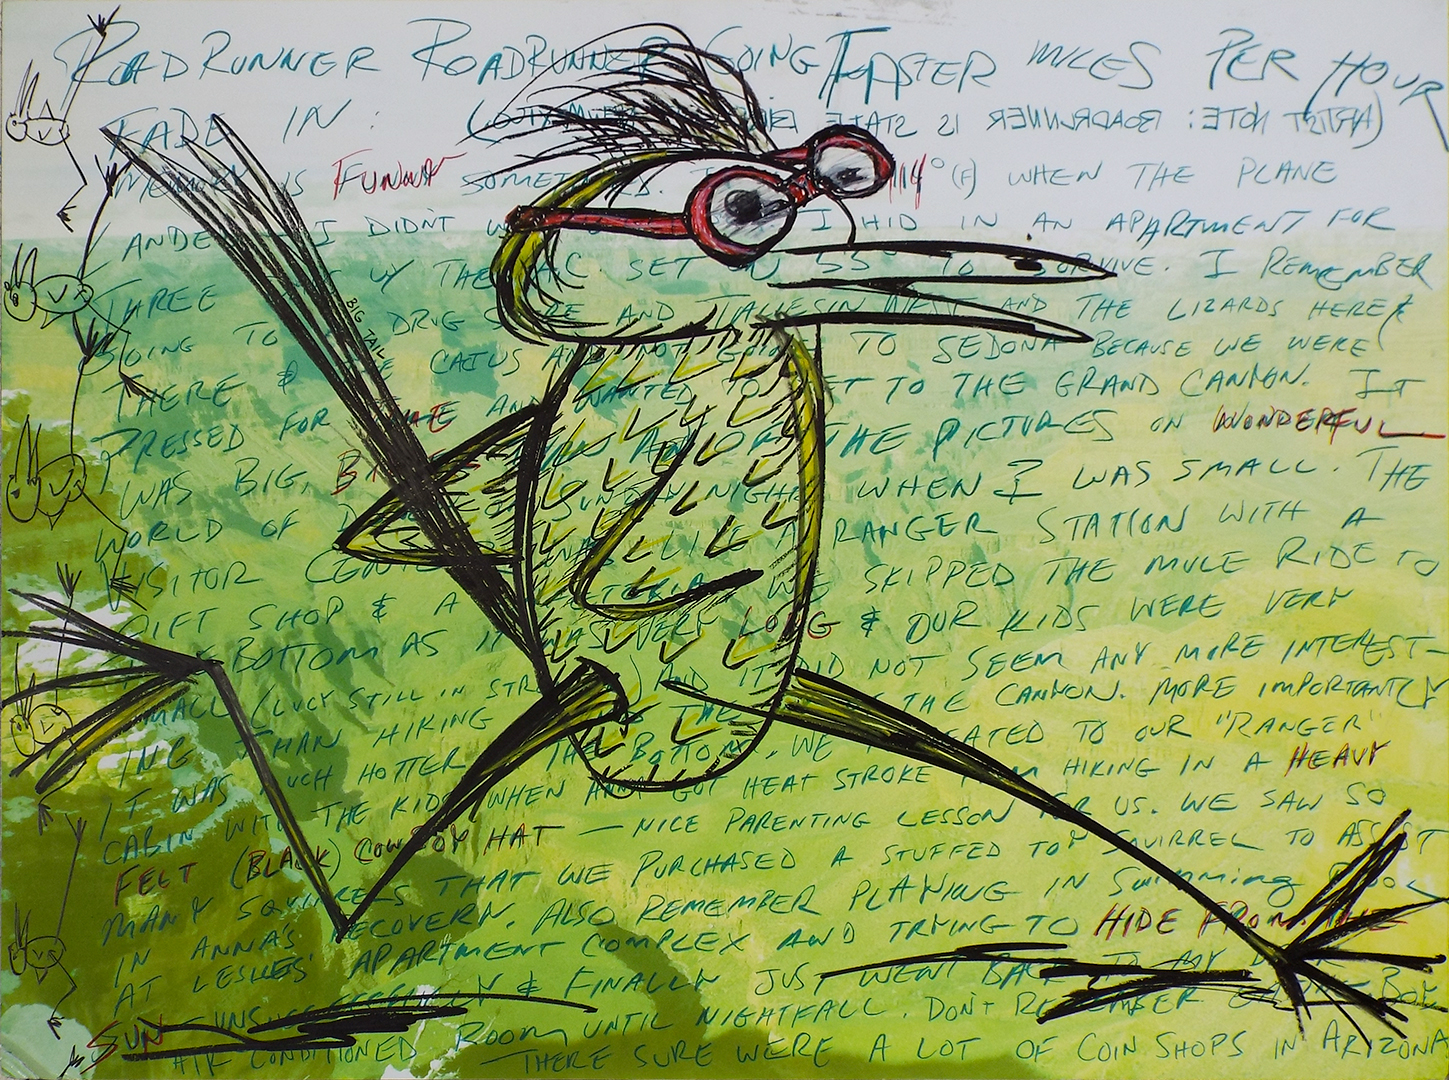 ROADRUNNER ROADRUNNER GOING FASTER MILES PER HOUR
FADE IN: (ARTIST NOTE: ROADRUNNER IS STATE
MEMORY IS FUNNY SOMETIMES. 114° (F) WHEN THE PLANE
I DIDN'T I HID IN AN APARTMENT FOR
THREE W/ THE A.C. SET 55° TO SURVIVE. I REMEMBER
GOING TO DRUG STORE AND TALIESIN WEST AND THE LIZARDS HERE &
THERE & AND NOT GOING TO SEDONA BECAUSE WE WERE
PRESSED FOR AND WANTED TO GET TO THE GRAND CANYON. IT
WAS BIG, THE PICTURES ON WONDERFUL
WORLD OF SUNDAY NIGHT WHEN I WAS SMALL. THE
VISITOR CENTER WAS LIKE A RANGER STATION WITH A
GIFT SHOP & A WE SKIPPED THE MULE RIDE TO
BOTTOM AS IT WAS VERY LONG & OUR KIDS WERE VERY
SMALL (LUCY STILL IN AND IT DID NOT SEEM ANY MORE INTEREST-
ING THAN HIKING THE THE CANYON. MORE IMPORTANTLY
IT WAS MUCH HOTTER THE BOTTOM. WE TO OUR "RANGER"
CABIN WITH THE KIDS WHEN ANNA GOT HEAT STROKE FROM HIKING IN A HEAVY
FELT (BLACK) COWBOY HAT — NICE PARENTING LESSON FOR US. WE SAW SO
MANY SQUIRRELS THAT WE PURCHASED A STUFFED TOY SQUIRREL TO ASSIST
IN ANNA'S RECOVERY. ALSO REMEMBER PLAYING IN SWIMMING POOL
AT LESLIES' APARTMENT COMPLEX AND TRYING TO HIDE FROM THE
SUN & FINALLY JUST WENT BACK TO MY
AIR CONDITIONED ROOM UNTIL NIGHTFALL. DON'T REMEMBER
THERE SURE WERE A LOT OF COIN SHOPS IN ARIZONA
BIG TAIL